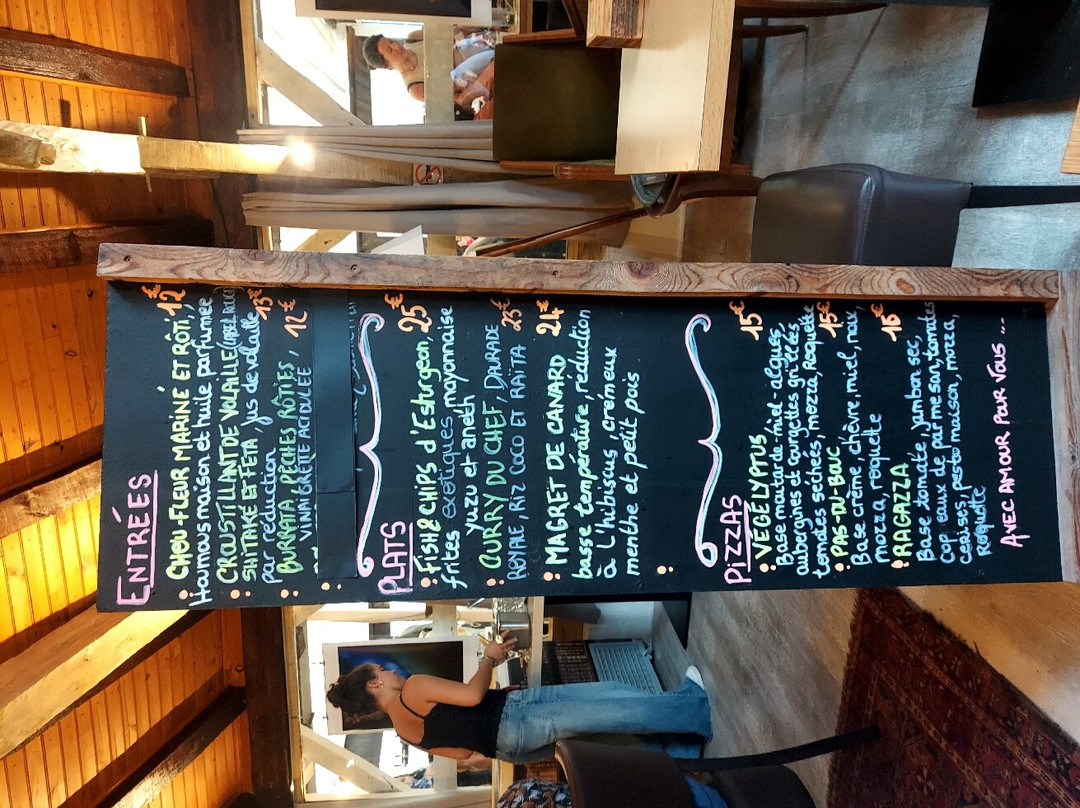 ENTRÉES
CHOU-FLEUR MARINÉ ET RÔTI, 12€
Houmous maison et huile parfumée
CROUSTILLANT DE VOLAILLE (LABEL ROUGE)
SHITAKÉ ET FÉTA, jus de volaille 13€
par réduction
BURRATA, PÊCHES RÔTIES, 12€
VINAIGRETTE ACIDULÉE
PLATS
FISH & CHIPS d'Esturgeon, 25€
frites exotiques mayonnaise
yuzu et aneth
CURRY DU CHEF, DAURADE 23€
ROYALE, RIZ COCO ET RAÏTA
MAGRET DE CANARD 24€
basse température, réduction
à l'hibiscus, crémeux
menthe et petit pois
PIZZAS
VÉGÉLYPTUS 15€
Base moutarde-miel-algues,
aubergines et courgettes grillées,
tomates séchées, mozza, Roquette
PAS-DU-BOUC 15€
Base crème, chèvre, miel, noix,
mozza, roquette
RAGAZZA 16€
Base tomate, jambon sec,
copeaux de parmesan, tomates
cerises, pesto maison, mozza,
Roquette
AVEC AMOUR POUR VOUS ...